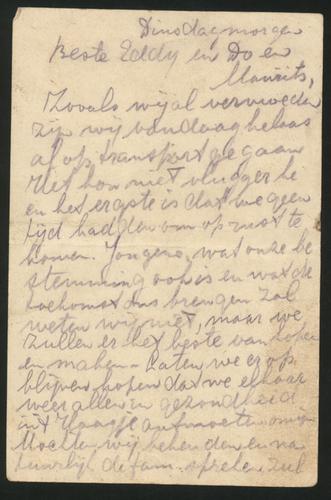 Dinsdagmorgen
Beste Eddy en Do en
Maurits,
Zooals wij al vermoeden
zijn wij vandaag helaas
al op transport gegaan
Het kon niet vlugger he
en het ergste is dat we geen
tijd hadden om op rust te
komen. Jongens, wat onze be
stemming ook is en wat de
toekomst ons brengen zal
weten wij niet, maar we
zullen er het beste van hopen
en maken. Laten we erop
blijven hopen dat we elkaar
weer allen in gezondheid
in't Haagje ontmoeten
Mochten wij bekenden en na
tuurlijk de fam. spreken zul